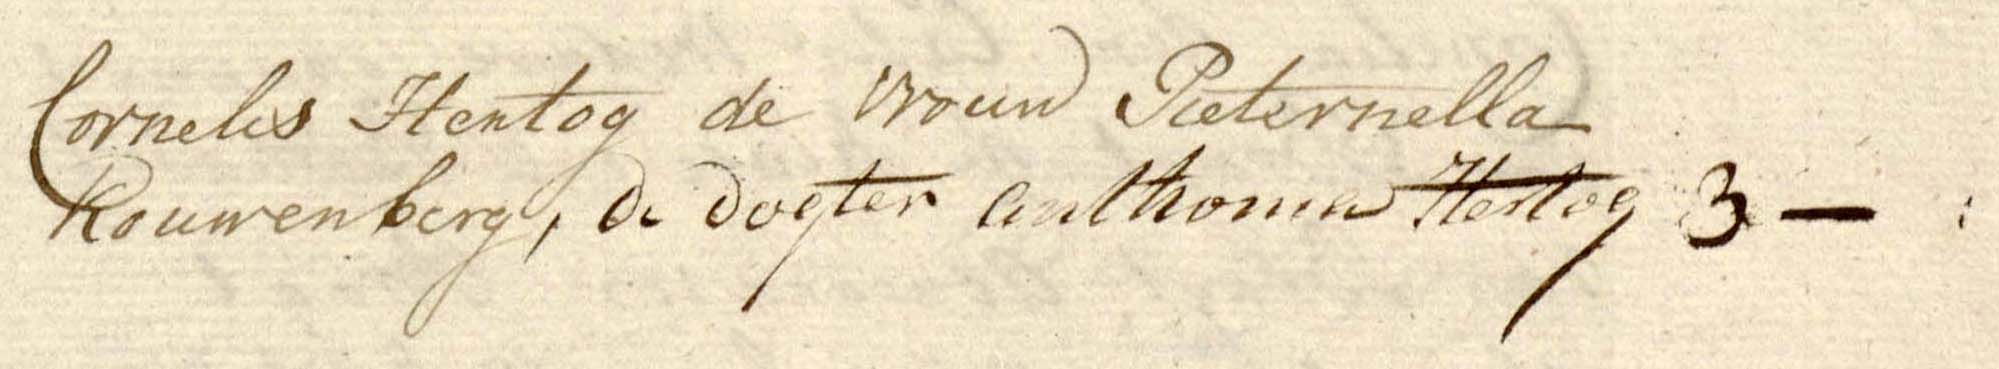 Cornelis Hentog de vrouw Pieternella
Rouwenberg, de dogter anthonia Hertog 3 —